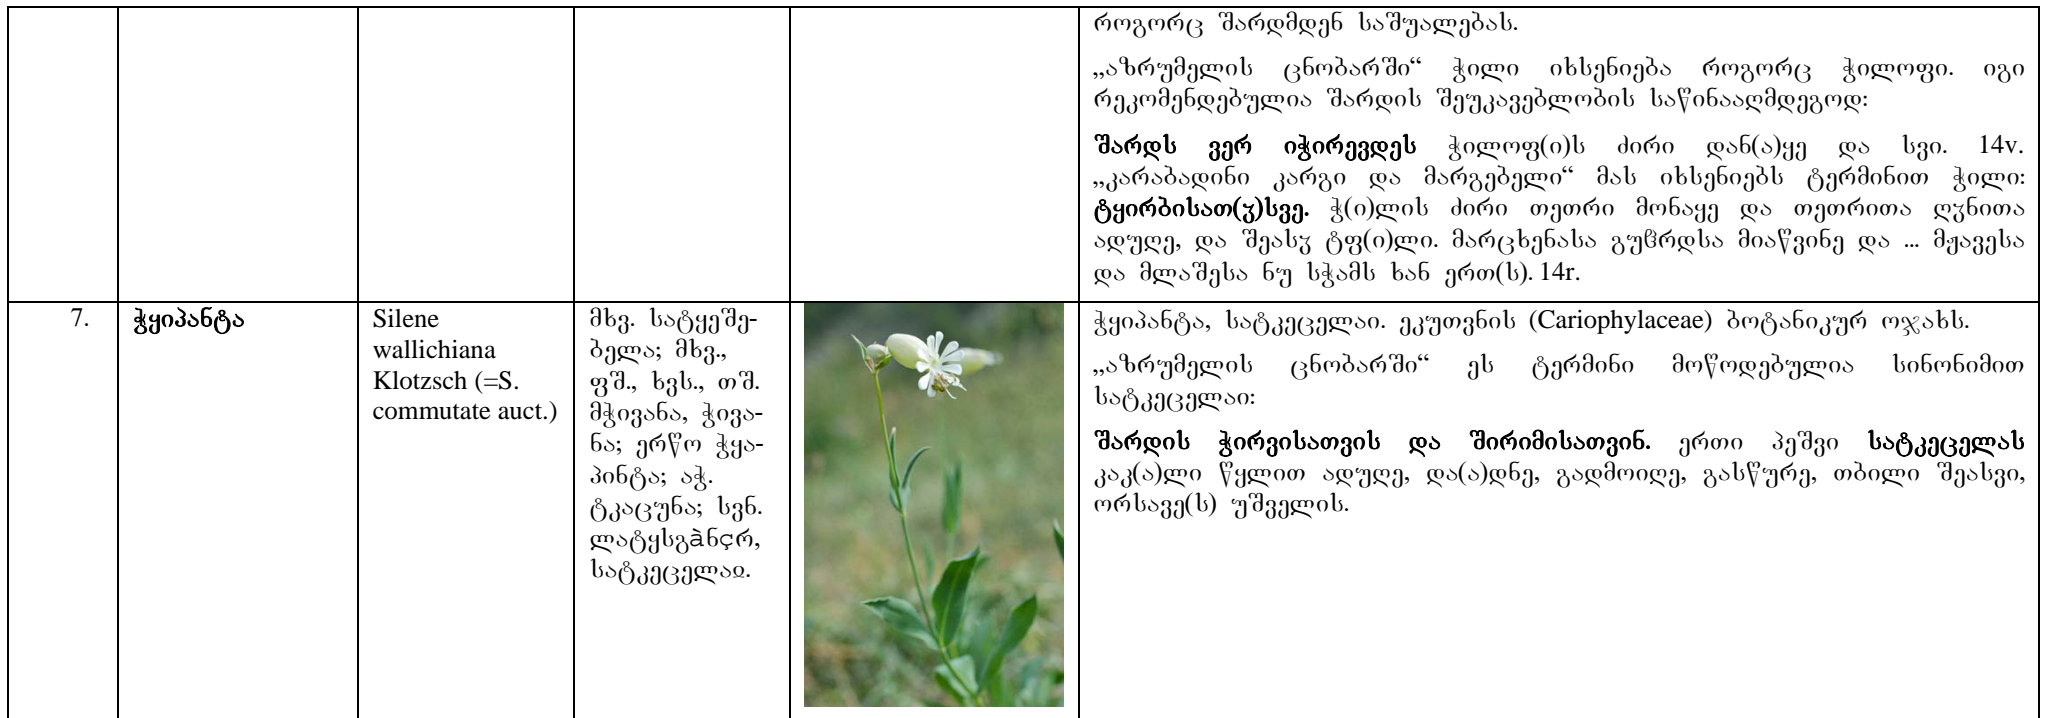 როგორც შარდმდენ საშუალებას.
„აზრუმელის ცნობარში“ ჭილი იხსენიება როგორც ჭილოფი. იგი
რეკომენდებულია შარდის შეუკავებლობის საწინააღმდეგოდ:
შარდს ვერ იჭირევდეს ჭილოფ(ი)ს ძირი დან(ა)ყე და სვი. 14v.
„კარაბადინი კარგი და მარგებელი“ მას იხსენიებს ტერმინით ჭილი:
ტყირბისათ(ჳ)სვე. ჭ(ი)ლის ძირი თეთრი მონაყე და თეთრითა ღჳნითა
ადუღე, და შეასჳ ტფ(ი)ლი. მარცხენასა გუჱრდსა მიაწვინე და ... მჟავესა
და მლაშესა ნუ სჭამს ხან ერთ(ს). 14r.
7.
ჭყიპანტა
Silene
wallichiana
Klotzsch (=S.
commutate auct.)
მხვ. სატყეშე-
ბელა; მხვ.,
ფშ., ხვს., თშ.
მჭივანა, ჭივა-
ნა; ერწო ჭყა-
პინტა; აჭ.
ტკაცუნა; სვნ.
ლატყსგàნçრ,
სატკეცელაჲ.
ჭყიპანტა, სატკეცელაი. ეკუთვნის (Cariophylaceae) ბოტანიკურ ოჯახს.
„აზრუმელის ცნობარში“ ეს ტერმინი მოწოდებულია სინონიმით
სატკეცელაი:
შარდის ჭირვისათვის და შირიმისათვინ. ერთი პეშვი სატკეცელას
კაკ(ა)ლი წყლით ადუღე, და(ა)დნე, გადმოიღე, გასწურე, თბილი შეასვი,
ორსავე(ს) უშველის.